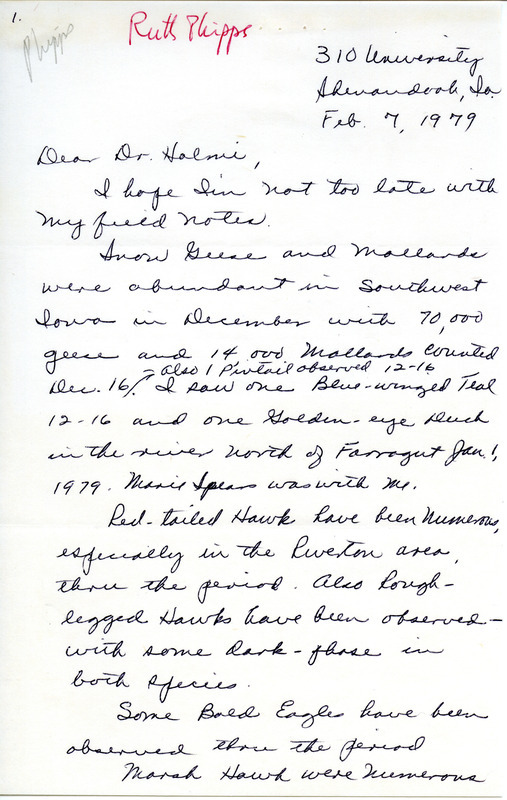 1.
Phipps
Ruth Phipps
310 University
Shenandoah, Ia.
Feb. 7, 1979
Dear Dr. Halmi,
I hope I'm not too late with
my field notes.
Snow Geese and Mallards
were abundant in Southwest
Iowa in December with 70,000
geese and 14,000 Mallards counted
- also 1 Pintail observed 12-16
Dec. 16/. I saw one Blue-winged Teal
12-16 and one Golden-eye Duck
in the river north of Farragut Jan. 1,
1979. Marie Spears was with me.
Red-tailed Hawk have been numerous,
especially in the Riverton area,
thru the period. Also Rough-
legged Hawks have been observed-
with some dark-phase in
both species.
Some Bald Eagles have been
observed thru the period
Marsh Hawk were numerous